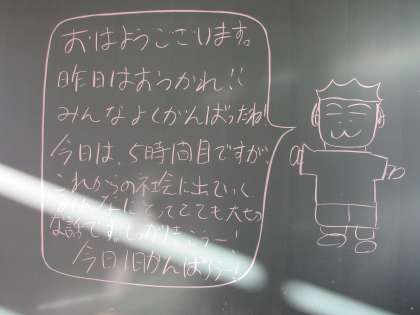 おはようございます。
昨日はおつかれ!!
みんなよくがんばったね!
今日は、5時間目ですが、
これからの社会に出ていく
みんなにとってとても大切
な話です。しっかりきこうー!
今日1日がんばろう!